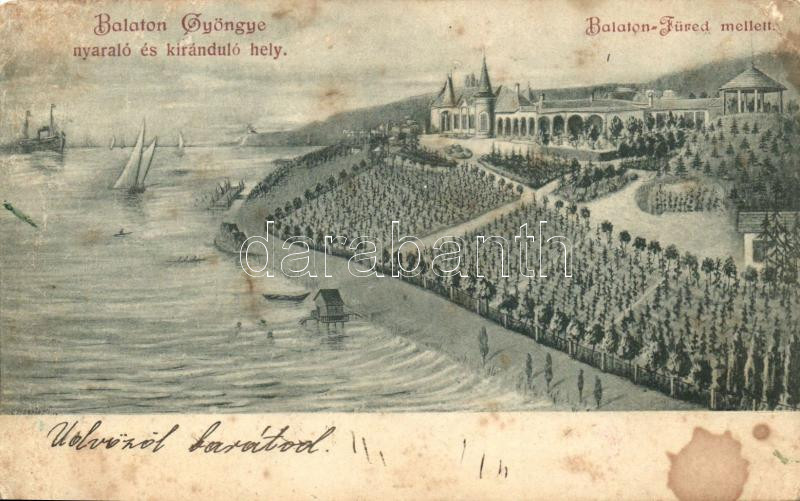 Balaton Gyöngye
nyaraló és kiránduló hely.
Balaton-Füred mellett.
darabanth
Üdvözöl barátod.